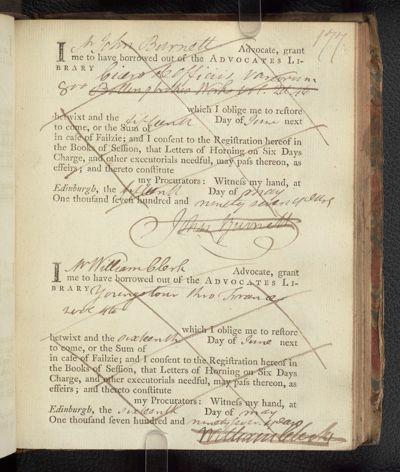 177.
I Mr John Burnett Advocate, grant
me to have borrowed out of the ADVOCATES LI-
BRARY Cicero de Officiis variorum
8vo Bollingbrokes Works Vol.
which I oblige me to reſtore
betwixt and the fifteenth Day of June next
to come, or the Sum of
in caſe of Failzie; and I conſent to the Regiſtration hereof in
the Books of Seſſion, that Letters of Horning on Six Days
Charge, and other executorials needful, may paſs thereon, as
effeirs; and thereto conſtitute
my Procurators: Witneſs my hand, at
Edinburgh, the fifteenth Day of may
One thouſand ſeven hundred and ninety seven years
John Burnett
I Mr William Clerk Advocate, grant
me to have borrowed out of the ADVOCATES LI-
BRARY Youngs tour thro France
which I oblige me to reſtore
betwixt and the sixteenth Day of June next
to come, or the Sum of
in caſe of Failzie; and I conſent to the Regiſtration hereof in
the Books of Seſſion, that Letters of Horning on Six Days
Charge, and other executorials needful, may paſs thereon, as
effeirs; and thereto conſtitute
my Procurators: Witneſs my hand, at
Edinburgh, the sixteenth Day of may
One thouſand ſeven hundred and ninety seven years
William Clerk